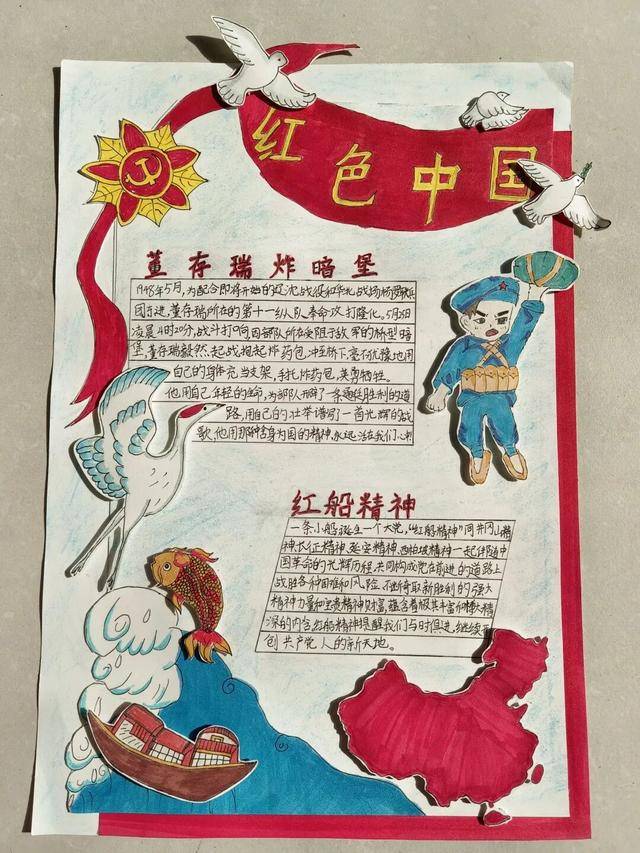 红色中国
董存瑞炸暗堡
1948年5月,为配合即将开始的辽沈战役和华北战场杨
团东进,董存瑞所在的第十一纵队奉命攻打隆化。5月25日
凌晨4时20分,战斗打响,因部队所在受阻于敌军的桥型暗
堡,董存瑞毅然起战,抱起炸药包,冲至桥下,毫不犹豫地用
自己的身体充当支架,手托炸药包,英勇牺牲。
他用自己年轻的生命,为部队开辟了一条通往胜利的道
路,用自己的壮举谱写了一首光辉的战
歌,他用那种舍身为国的精神,永远活在我们心中
红船精神
一条小船诞生一个大党,“红船精神”同井冈山精
神、长征精神、延安精神、西柏坡精神一起伴随中
国革命的光辉历程,共同构成党在前进的道路上
战胜各种困难和风险,不断夺取新胜利的强大
精神力量和宝贵精神财富,蕴含着极其丰富和精
深的内含红船精神提醒我们与时俱进,继续开
创共产党人的新天地。